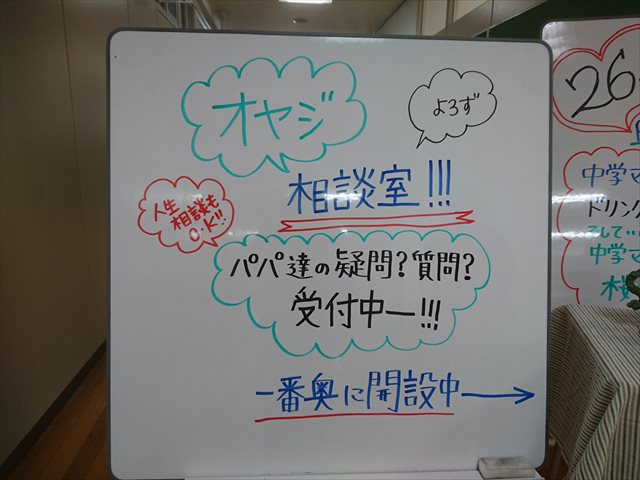 オヤジ
よろず
相談室!!!
人生
相談も
O.K!!
パパ達の疑問?質問?
受付中ー!!!
一番奥に開設中→
26
中学
ドリン
そして…
中学